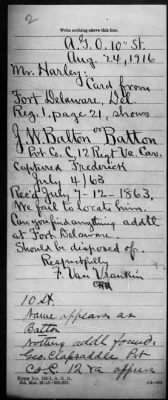 2
Write nothing above this line.
A.G.O. 10th St.
Aug. 24, 1916
Mr. Harley:
Card from
Fort Delaware, Del.
Reg. 1, page 21, shows
J. W. Balton or Batton
Pvt Co. C, 12 Regt Va. Cav.
Captured Frederick
July 4/63
Rec'd July 7-12-1863,
We fail to locate him.
Can you find anything addtl
at Fort Delaware.
Should be disposed of.
Respectfully
F. Van
10 St.
Name appears as
Batton
nothing addl found.
Geo. Clapsaddle Pvt
Co C. 12 Va appears